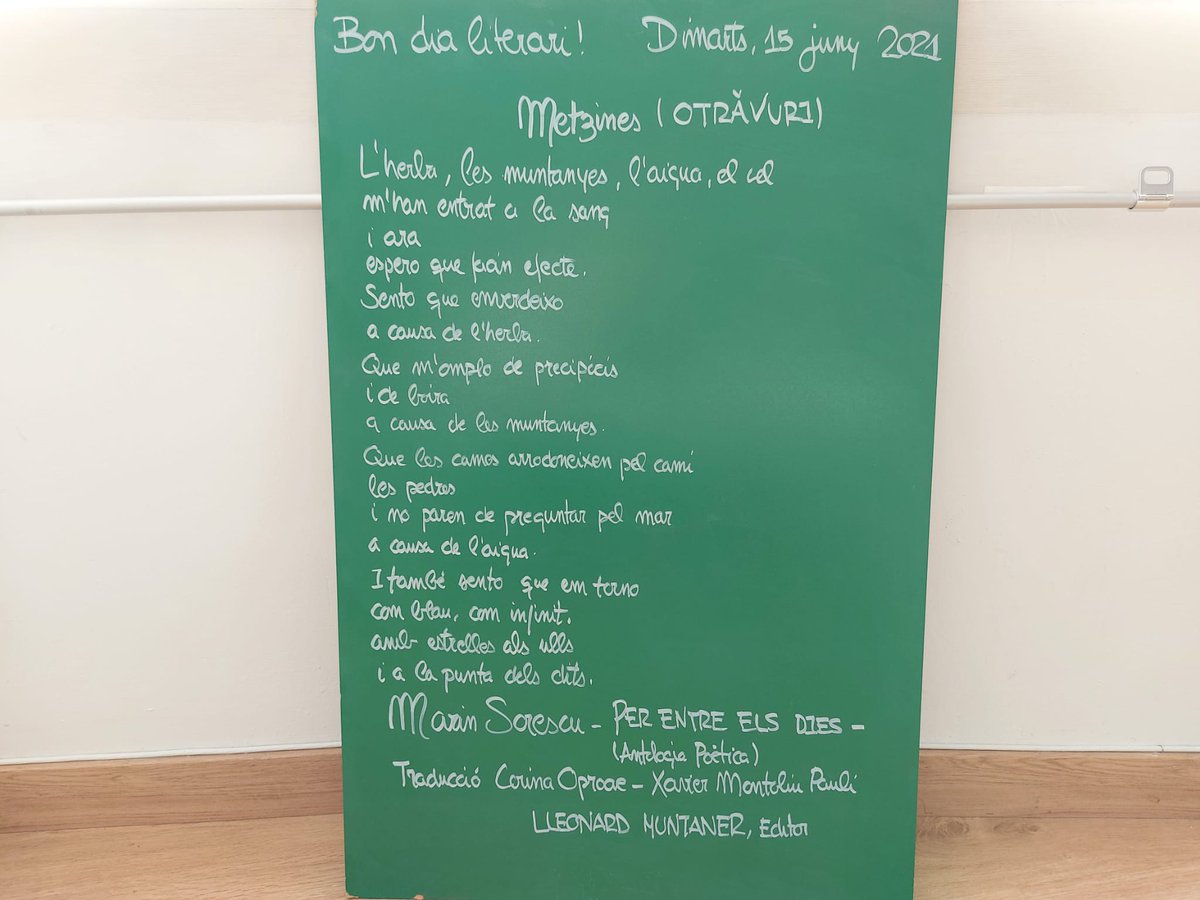 Bon dia literari! Dimarts, 15 juny 2021
Metzines (OTRĂVURI)
L'herba, les muntanyes, l'aigua, el cel
m'han entrat a la sang
i ara
espero que facin efecte.
Sento que enverdeixo
a causa de l'herba.
Que m'omplo de precipicis
i de boira
a causa de les muntanyes.
Que les cames arrodoneixen pel camí
les pedres
i no paren de preguntar pel mar
a causa de l'aigua.
I també sento que em torno
com blau, com infinit,
amb estrelles als ulls
i a la punta dels dits.
Marin Sorescu - PER ENTRE ELS DIES -
(Antologia Poètica)
Traducció Corina Oproae - Xavier Montoliu Paulí
LLEONARD MUNTANER, Editor